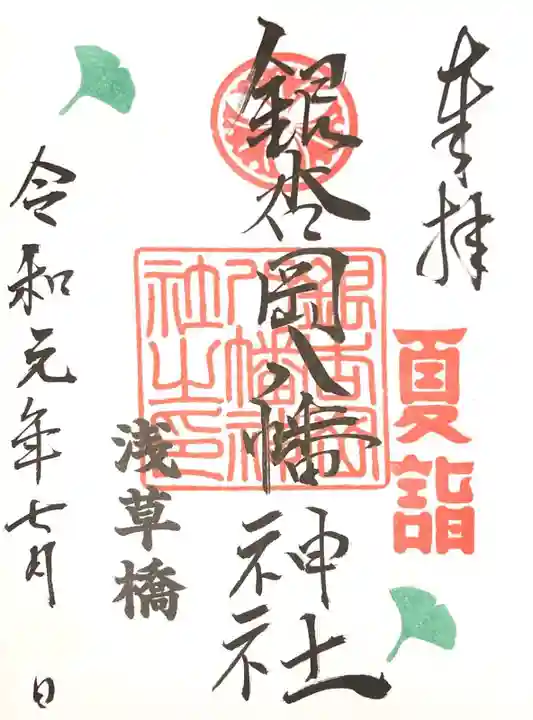 奉拝
夏詣
銀杏岡八幡神社
銀杏岡
八幡神
社之印
浅草橋
令和元年七月 日